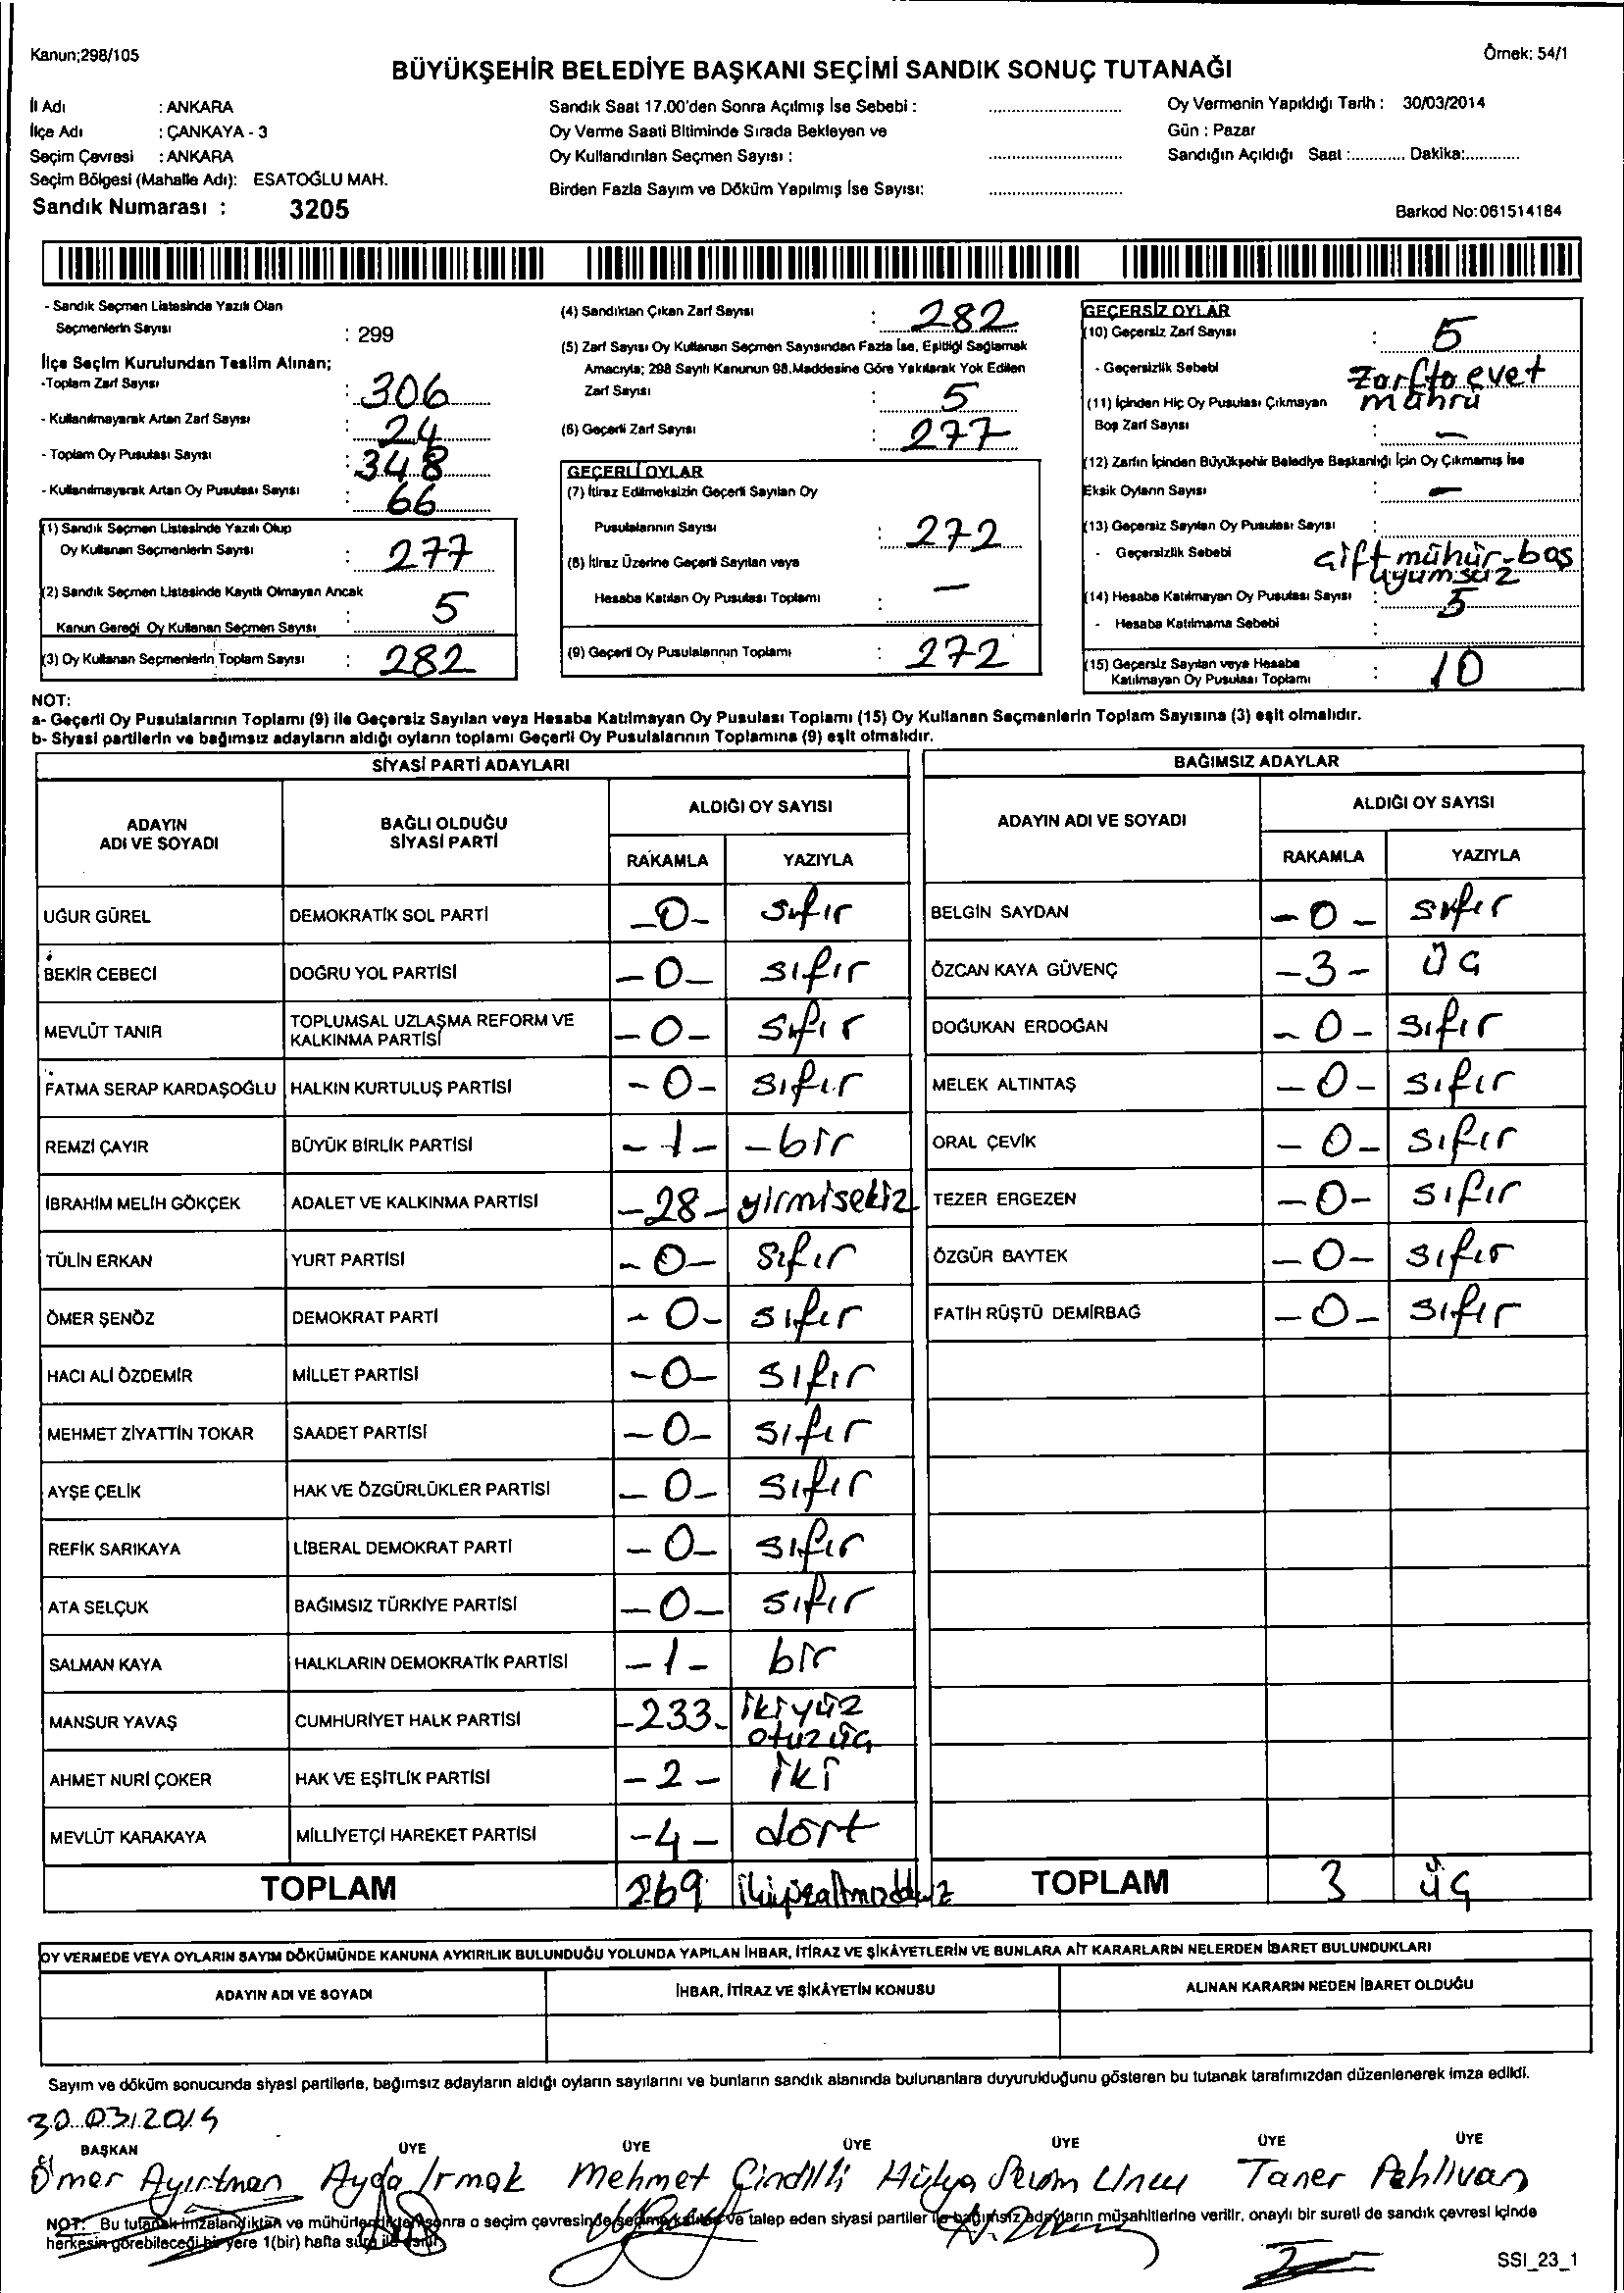 Kanun;298/105
Örnek: 54/1
BÜYÜKŞEHİR BELEDİYE BAŞKANI SEÇİMİ SANDIK SONUÇ TUTANAĞI
İl Adı : ANKARA
İlçe Adı : ÇANKAYA - 3
Seçim Çevresi : ANKARA
Seçim Bölgesi (Mahalle Adı): ESATOĞLU MAH.
Sandık Numarası : 3205
Sandık Saat 17.00'den Sonra Açılmış İse Sebebi : ..............................
Oy Verme Saati Bitiminde Sırada Bekleyen ve
Oy Kullandırılan Seçmen Sayısı : ..............................
Birden Fazla Sayım ve Döküm Yapılmış İse Sayısı: ..............................
Oy Vermenin Yapıldığı Tarih : 30/03/2014
Gün : Pazar
Sandığın Açıldığı Saat :............ Dakika:............
Barkod No:061514184
- Sandık Seçmen Listesinde Yazılı Olan
Seçmenlerin Sayısı : 299
İlçe Seçim Kurulundan Teslim Alınan;
-Toplam Zarf Sayısı : 306
- Kullanılmayarak Artan Zarf Sayısı : 24
- Toplam Oy Pusulası Sayısı : 348
- Kullanılmayarak Artan Oy Pusulası Sayısı : 66
(1) Sandık Seçmen Listesinde Yazılı Olup
Oy Kullanan Seçmenlerin Sayısı : 277
(2) Sandık Seçmen Listesinde Kayıtlı Olmayan Ancak
Kanun Gereği Oy Kullanan Seçmen Sayısı : 5
(3) Oy Kullanan Seçmenlerin Toplam Sayısı : 282
(4) Sandıktan Çıkan Zarf Sayısı : 282
(5) Zarf Sayısı Oy Kullanan Seçmen Sayısından Fazla İse, Eşitliği Sağlamak
Amacıyla; 298 Sayılı Kanunun 98.Maddesine Göre Yakılarak Yok Edilen
Zarf Sayısı : 5
(6) Geçerli Zarf Sayısı : 277
GEÇERLİ OYLAR
(7) İtiraz Edilmeksizin Geçerli Sayılan Oy
Pusulalarının Sayısı : 272
(8) İtiraz Üzerine Geçerli Sayılan veya
Hesaba Katılan Oy Pusulası Toplamı : -
(9) Geçerli Oy Pusulalarının Toplamı : 272
GEÇERSİZ OYLAR
(10) Geçersiz Zarf Sayısı : 5
- Geçersizlik Sebebi Zarfta evet
mührü
(11) İçinden Hiç Oy Pusulası Çıkmayan
Boş Zarf Sayısı : -
(12) Zarfın İçinden Büyükşehir Belediye Başkanlığı İçin Oy Çıkmamış İse
Eksik Oyların Sayısı : -
(13) Geçersiz Sayılan Oy Pusulası Sayısı :
- Geçersizlik Sebebi çift mühür-boş
uyumsuz
(14) Hesaba Katılmayan Oy Pusulası Sayısı : 5
- Hesaba Katılmama Sebebi :
(15) Geçersiz Sayılan veya Hesaba
Katılmayan Oy Pusulası Toplamı : 10
NOT:
a- Geçerli Oy Pusulalarının Toplamı (9) ile Geçersiz Sayılan veya Hesaba Katılmayan Oy Pusulası Toplamı (15) Oy Kullanan Seçmenlerin Toplam Sayısına (3) eşit olmalıdır.
b- Siyasi partilerin ve bağımsız adayların aldığı oyların toplamı Geçerli Oy Pusulalarının Toplamına (9) eşit olmalıdır.
SİYASİ PARTİ ADAYLARI
ADAYIN
ADI VE SOYADI
BAĞLI OLDUĞU
SİYASİ PARTİ
ALDIĞI OY SAYISI
RAKAMLA YAZIYLA
UĞUR GÜREL DEMOKRATİK SOL PARTİ -0- sıfır
BEKİR CEBECİ DOĞRU YOL PARTİSİ -0- sıfır
MEVLÜT TANIR TOPLUMSAL UZLAŞMA REFORM VE
KALKINMA PARTİSİ -0- sıfır
FATMA SERAP KARDAŞOĞLU HALKIN KURTULUŞ PARTİSİ -0- sıfır
REMZİ ÇAYIR BÜYÜK BİRLİK PARTİSİ -1- -bir
İBRAHİM MELİH GÖKÇEK ADALET VE KALKINMA PARTİSİ -28- yirmisekiz
TÜLİN ERKAN YURT PARTİSİ -0- sıfır
ÖMER ŞENÖZ DEMOKRAT PARTİ -0- sıfır
HACI ALİ ÖZDEMİR MİLLET PARTİSİ -0- sıfır
MEHMET ZİYATTİN TOKAR SAADET PARTİSİ -0- sıfır
AYŞE ÇELİK HAK VE ÖZGÜRLÜKLER PARTİSİ -0- sıfır
REFİK SARIKAYA LİBERAL DEMOKRAT PARTİ -0- sıfır
ATA SELÇUK BAĞIMSIZ TÜRKİYE PARTİSİ -0- sıfır
SALMAN KAYA HALKLARIN DEMOKRATİK PARTİSİ -1- bir
MANSUR YAVAŞ CUMHURİYET HALK PARTİSİ -233- ikiyüz
otuzüç
AHMET NURİ ÇOKER HAK VE EŞİTLİK PARTİSİ -2- iki
MEVLÜT KARAKAYA MİLLİYETÇİ HAREKET PARTİSİ -4- dört
TOPLAM 269
BAĞIMSIZ ADAYLAR
ADAYIN ADI VE SOYADI
ALDIĞI OY SAYISI
RAKAMLA YAZIYLA
BELGİN SAYDAN -0- sıfır
ÖZCAN KAYA GÜVENÇ -3- üç
DOĞUKAN ERDOĞAN -0- sıfır
MELEK ALTINTAŞ -0- sıfır
ORAL ÇEVİK -0- sıfır
TEZER ERGEZEN -0- sıfır
ÖZGÜR BAYTEK -0- sıfır
FATİH RÜŞTÜ DEMİRBAĞ -0- sıfır
TOPLAM 3 üç
OY VERMEDE VEYA OYLARIN SAYIM DÖKÜMÜNDE KANUNA AYKIRILIK BULUNDUĞU YOLUNDA YAPILAN İHBAR, İTİRAZ VE ŞİKÂYETLERİN VE BUNLARA AİT KARARLARIN NELERDEN İBARET BULUNDUKLARI
ADAYIN ADI VE SOYADI İHBAR, İTİRAZ VE ŞİKÂYETİN KONUSU ALINAN KARARIN NEDEN İBARET OLDUĞU
Sayım ve döküm sonucunda siyasi partilerle, bağımsız adayların aldığı oyların sayılarını ve bunların sandık alanında bulunanlara duyurulduğunu gösteren bu tutanak tarafımızdan düzenlenerek imza edildi.
30.03.2014
BAŞKAN ÜYE ÜYE ÜYE ÜYE ÜYE ÜYE
Ömer Ayırtman Ayda Irmak Mehmet Çindilli Hülya Taner Pehlivan
NOT: Bu tutanak imzalandıktan ve mühürlendikten sonra o seçim çevresinde seçime katılan ve talep eden siyasi partiler ile bağımsız adayların müşahitlerine verilir, onaylı bir sureti de sandık çevresi içinde
herkesin görebileceği bir yere 1(bir) hafta süre ile asılır.
SSI_23_1